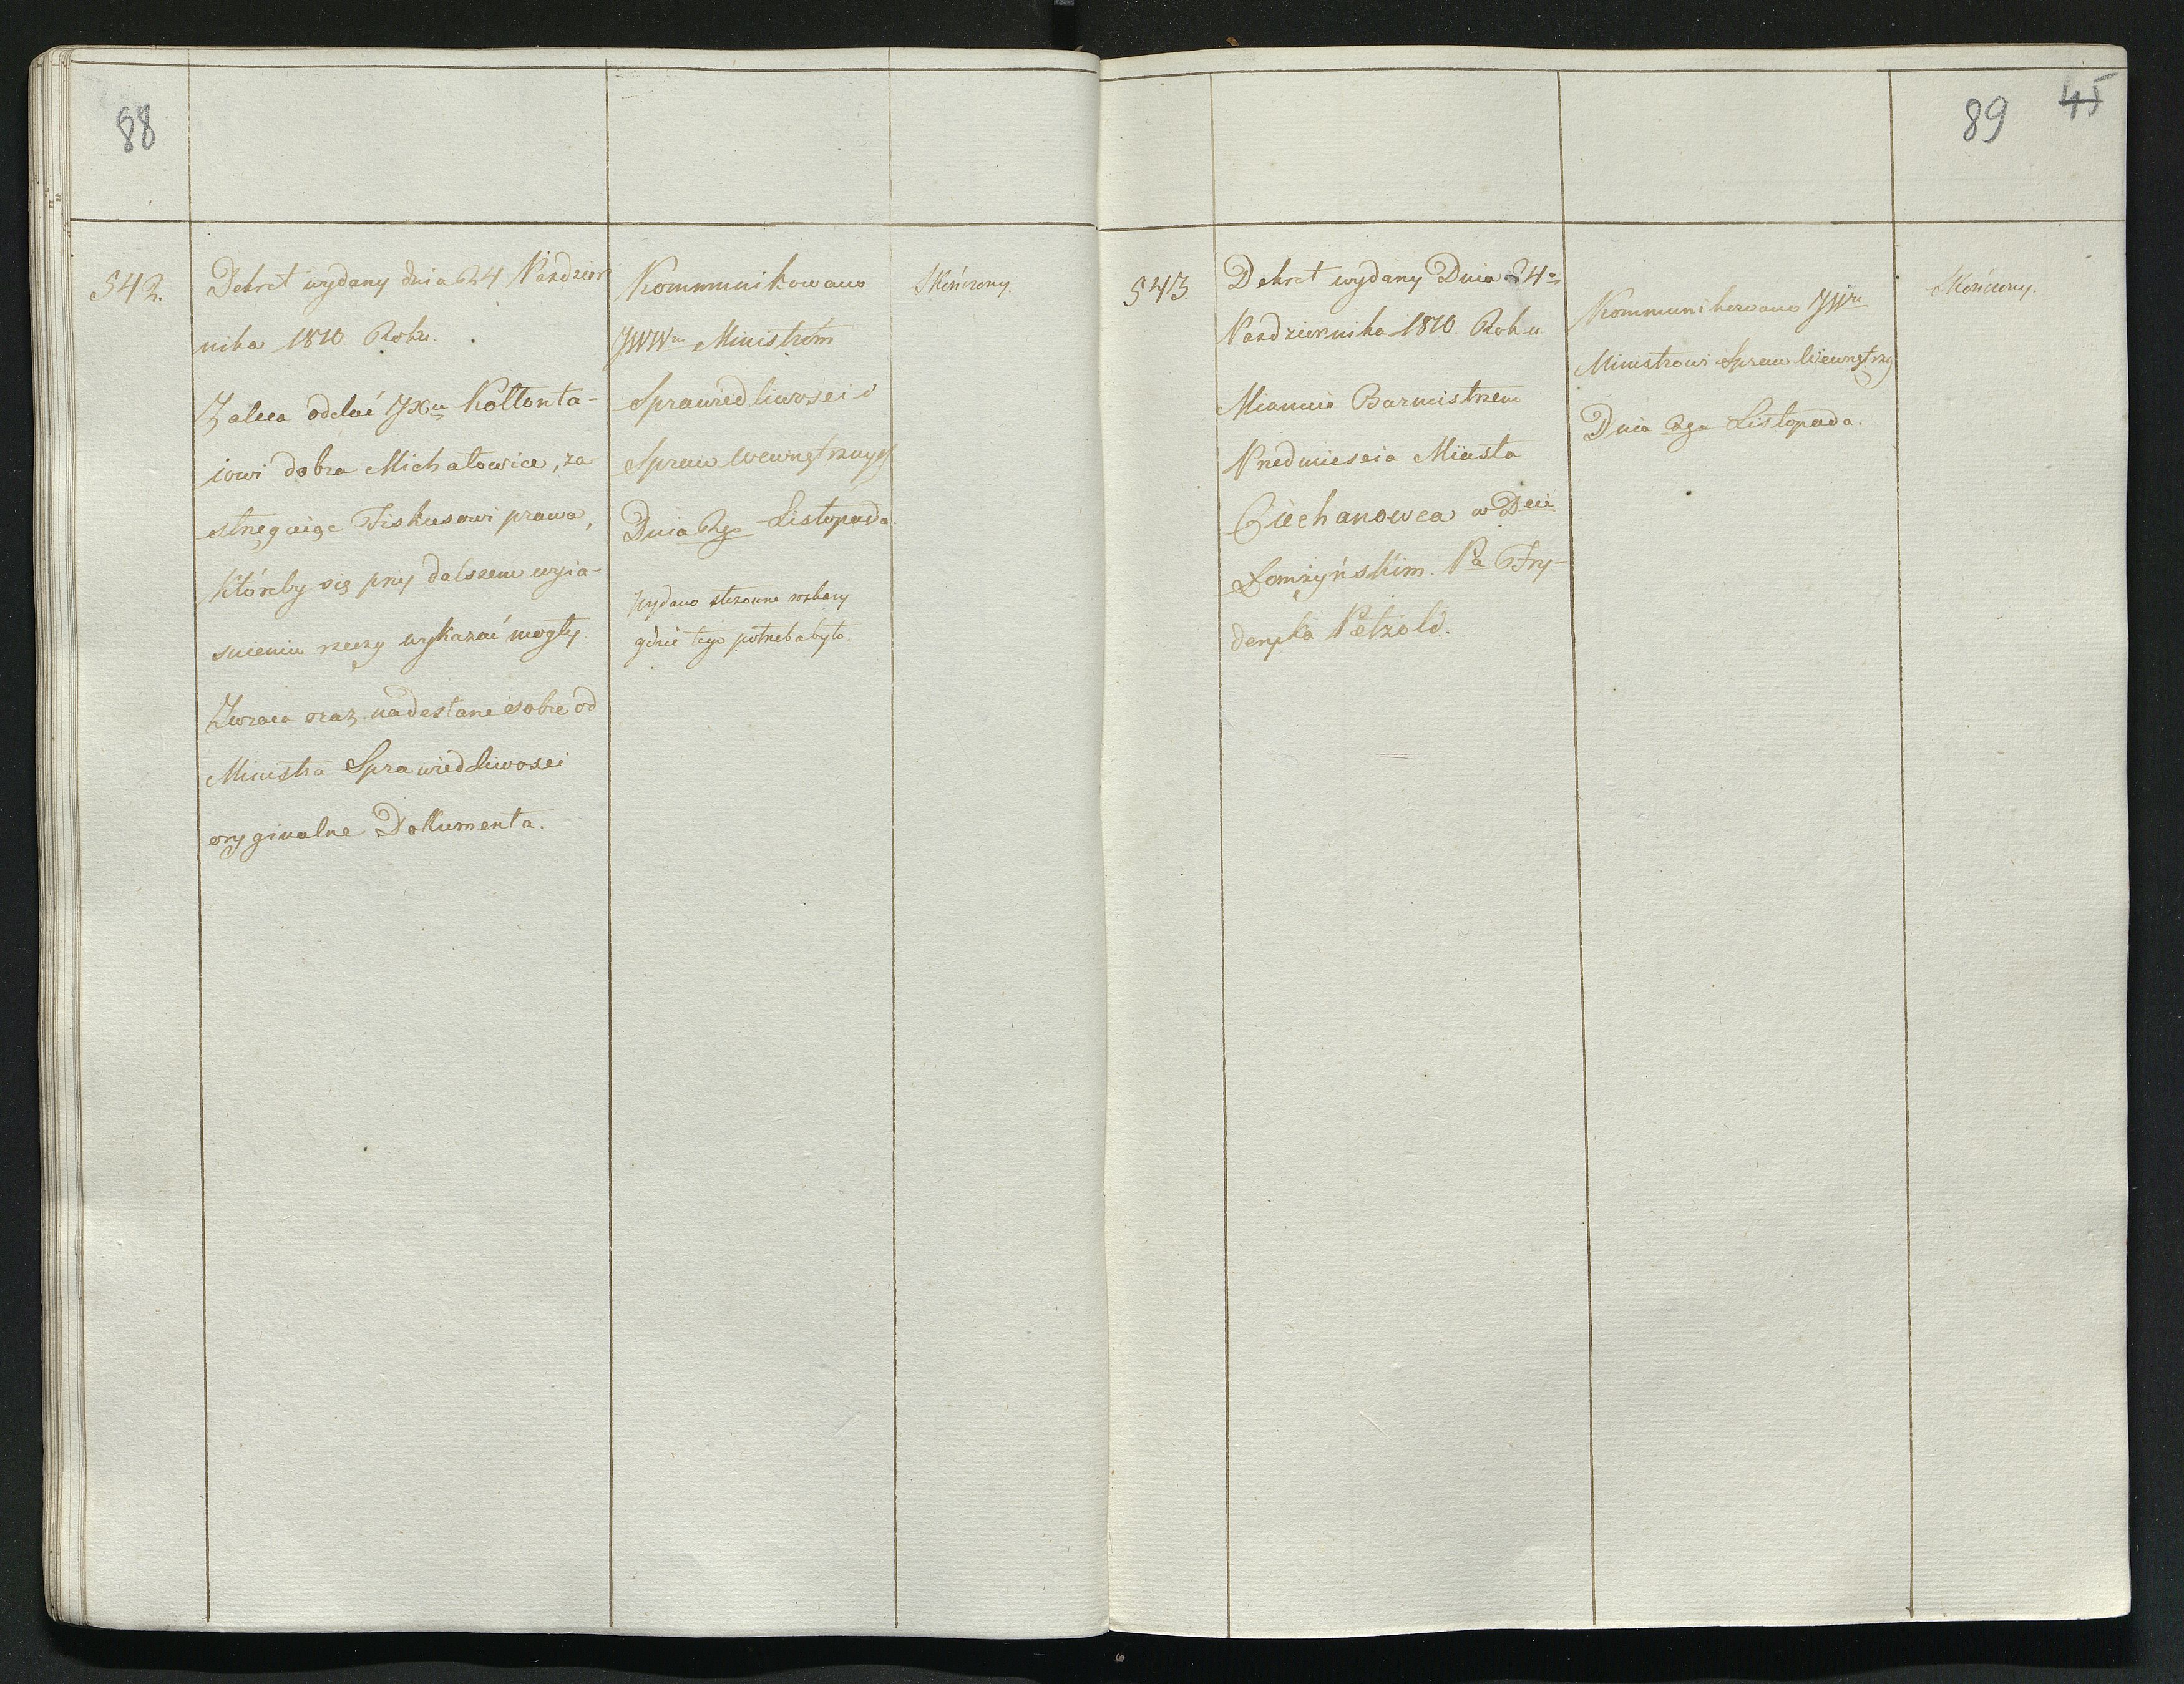 88
542.
Dekret wydany dnia 24 Pazdzier
nika 1810 Roku.
Zaleca oddać JXu Kołłonta-
iowi dobra Michałowice, za
strzegaiąc Fiskusowi prawa,
któreby się przy dalszem wyia-
snieniu rzeczy wykazać mogły.
Zwraca oraz nadesłane sobie od
Ministra Sprawiedliwosci
oryginalne Dokumenta.
Kommunikowano
JWW Ministrom
Sprawiedliwosci i
Spraw Wewnętrznych
Dnia 2go Listopada.
Wydano stosowne rozkazy
gdzie tego potrzeba było.
Skończony.
89 45
543.
Dekret wydany Dnia 24o
Pazdziernika 1810. Roku
Mianuie Burmistrzem
Przedmiescia Miasta
Ciechanowca w Dcie
Łomżyńskim. Pa Fry-
deryka Petzold.
Kommunikowano JW
Ministrowi Spraw Wewnętrzy
Dnia 2go Listopada.
Skończony.